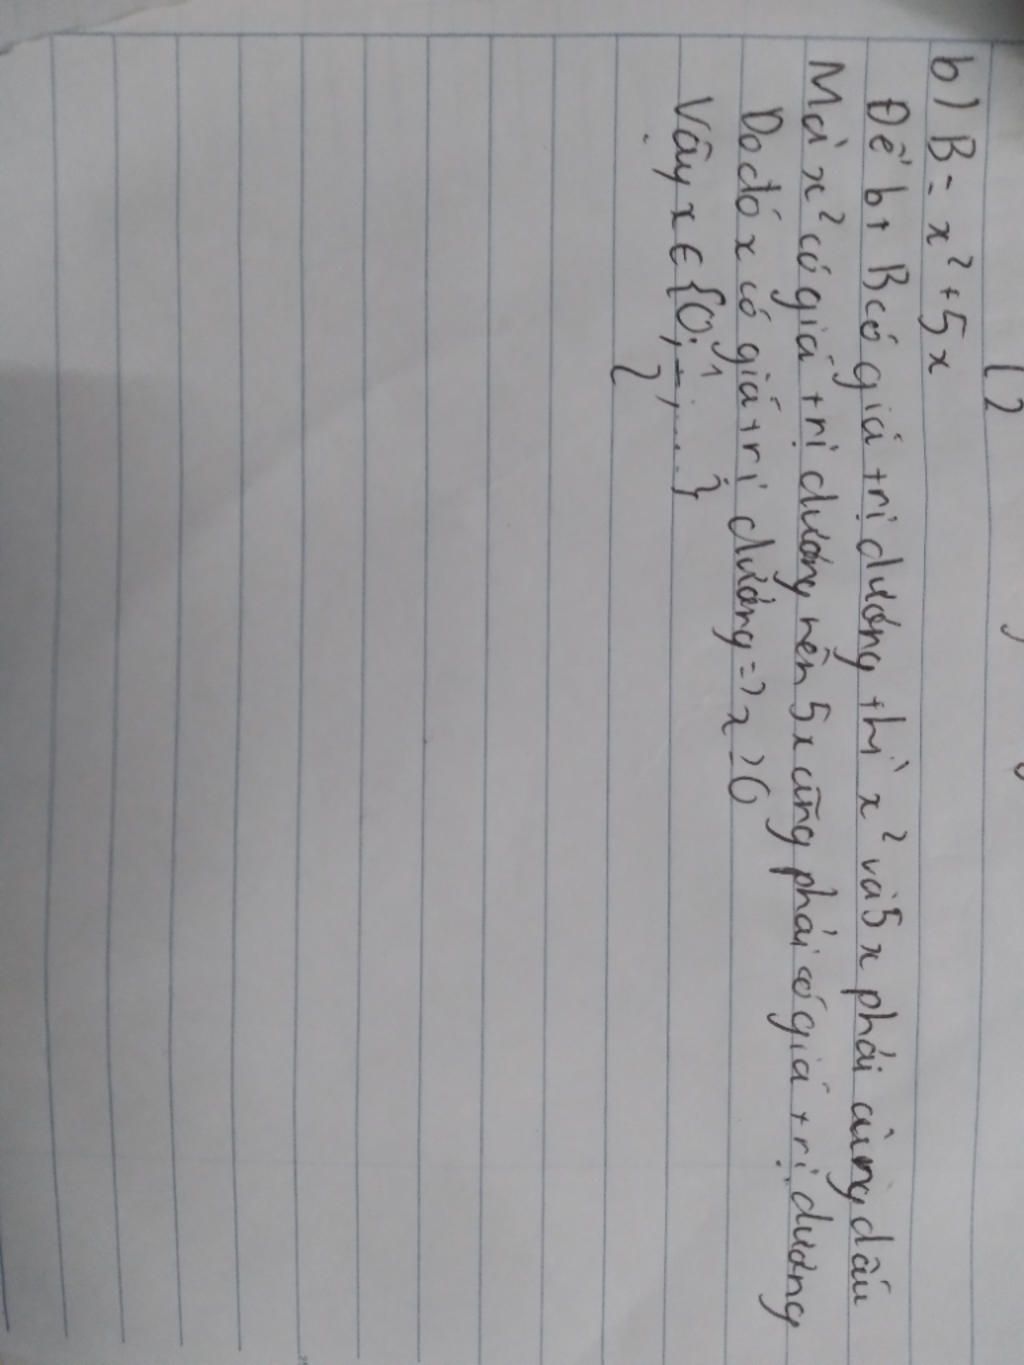 b) B = x² + 5x
Để bt B có giá trị dương thì x² và 5x phải cùng dấu
Mà x² có giá trị dương nên 5x cũng phải có giá trị dương
Do đó x có giá trị dương => x ≥ 0
Vậy x ∈ {0; 1; ...}